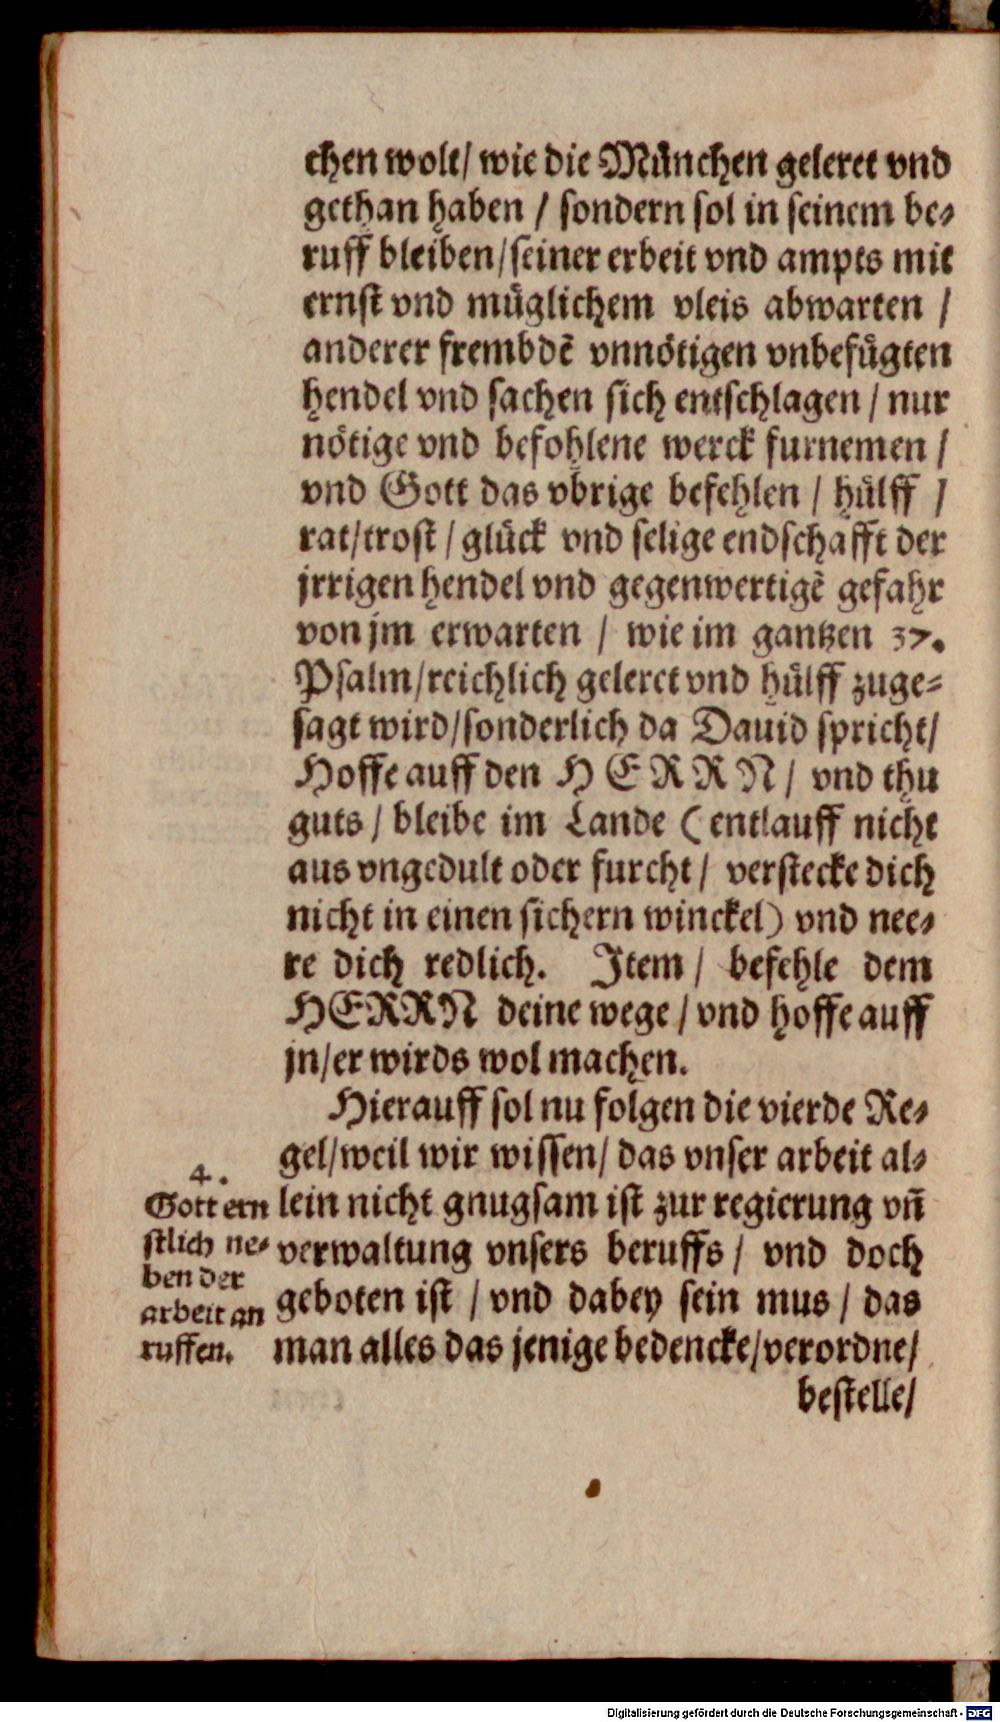 chen wolt/ wie die München geleret vnd
gethan haben / sondern sol in seinem be-
ruff bleiben/seiner erbeit vnd ampts mit
ernst vnd müglichem vleis abwarten /
anderer frembdē vnnötigen vnbefügten
hendel vnd sachen sich entschlagen / nur
nötige vnd befohlene werck furnemen /
vnd Gott das vbrige befehlen / hülff /
rat/trost / glück vnd selige endschafft der
jrrigen hendel vnd gegenwertigē gefahr
von jm erwarten / wie im gantzen 37.
Psalm/reichlich geleret vnd hülff zuge-
sagt wird/sonderlich da Dauid spricht/
Hoffe auff den HERRN/ vnd thu
guts / bleibe im Lande (entlauff nicht
aus vngedult oder furcht / verstecke dich
nicht in einen sichern winckel) vnd nee-
re dich redlich. Item / befehle dem
HERRN deine wege / vnd hoffe auff
jn/er wirds wol machen.
Hierauff sol nu folgen die vierde Re-
gel/weil wir wissen/ das vnser arbeit al-
lein nicht gnugsam ist zur regierung vn̄
verwaltung vnsers beruffs / vnd doch
geboten ist / vnd dabey sein mus / das
man alles das jenige bedencke/verordne/
bestelle/
4.
Gott ern
stlich ne-
ben der
arbeit an
ruffen.
Digitalisierung gefördert durch die Deutsche Forschungsgemeinschaft - DFG